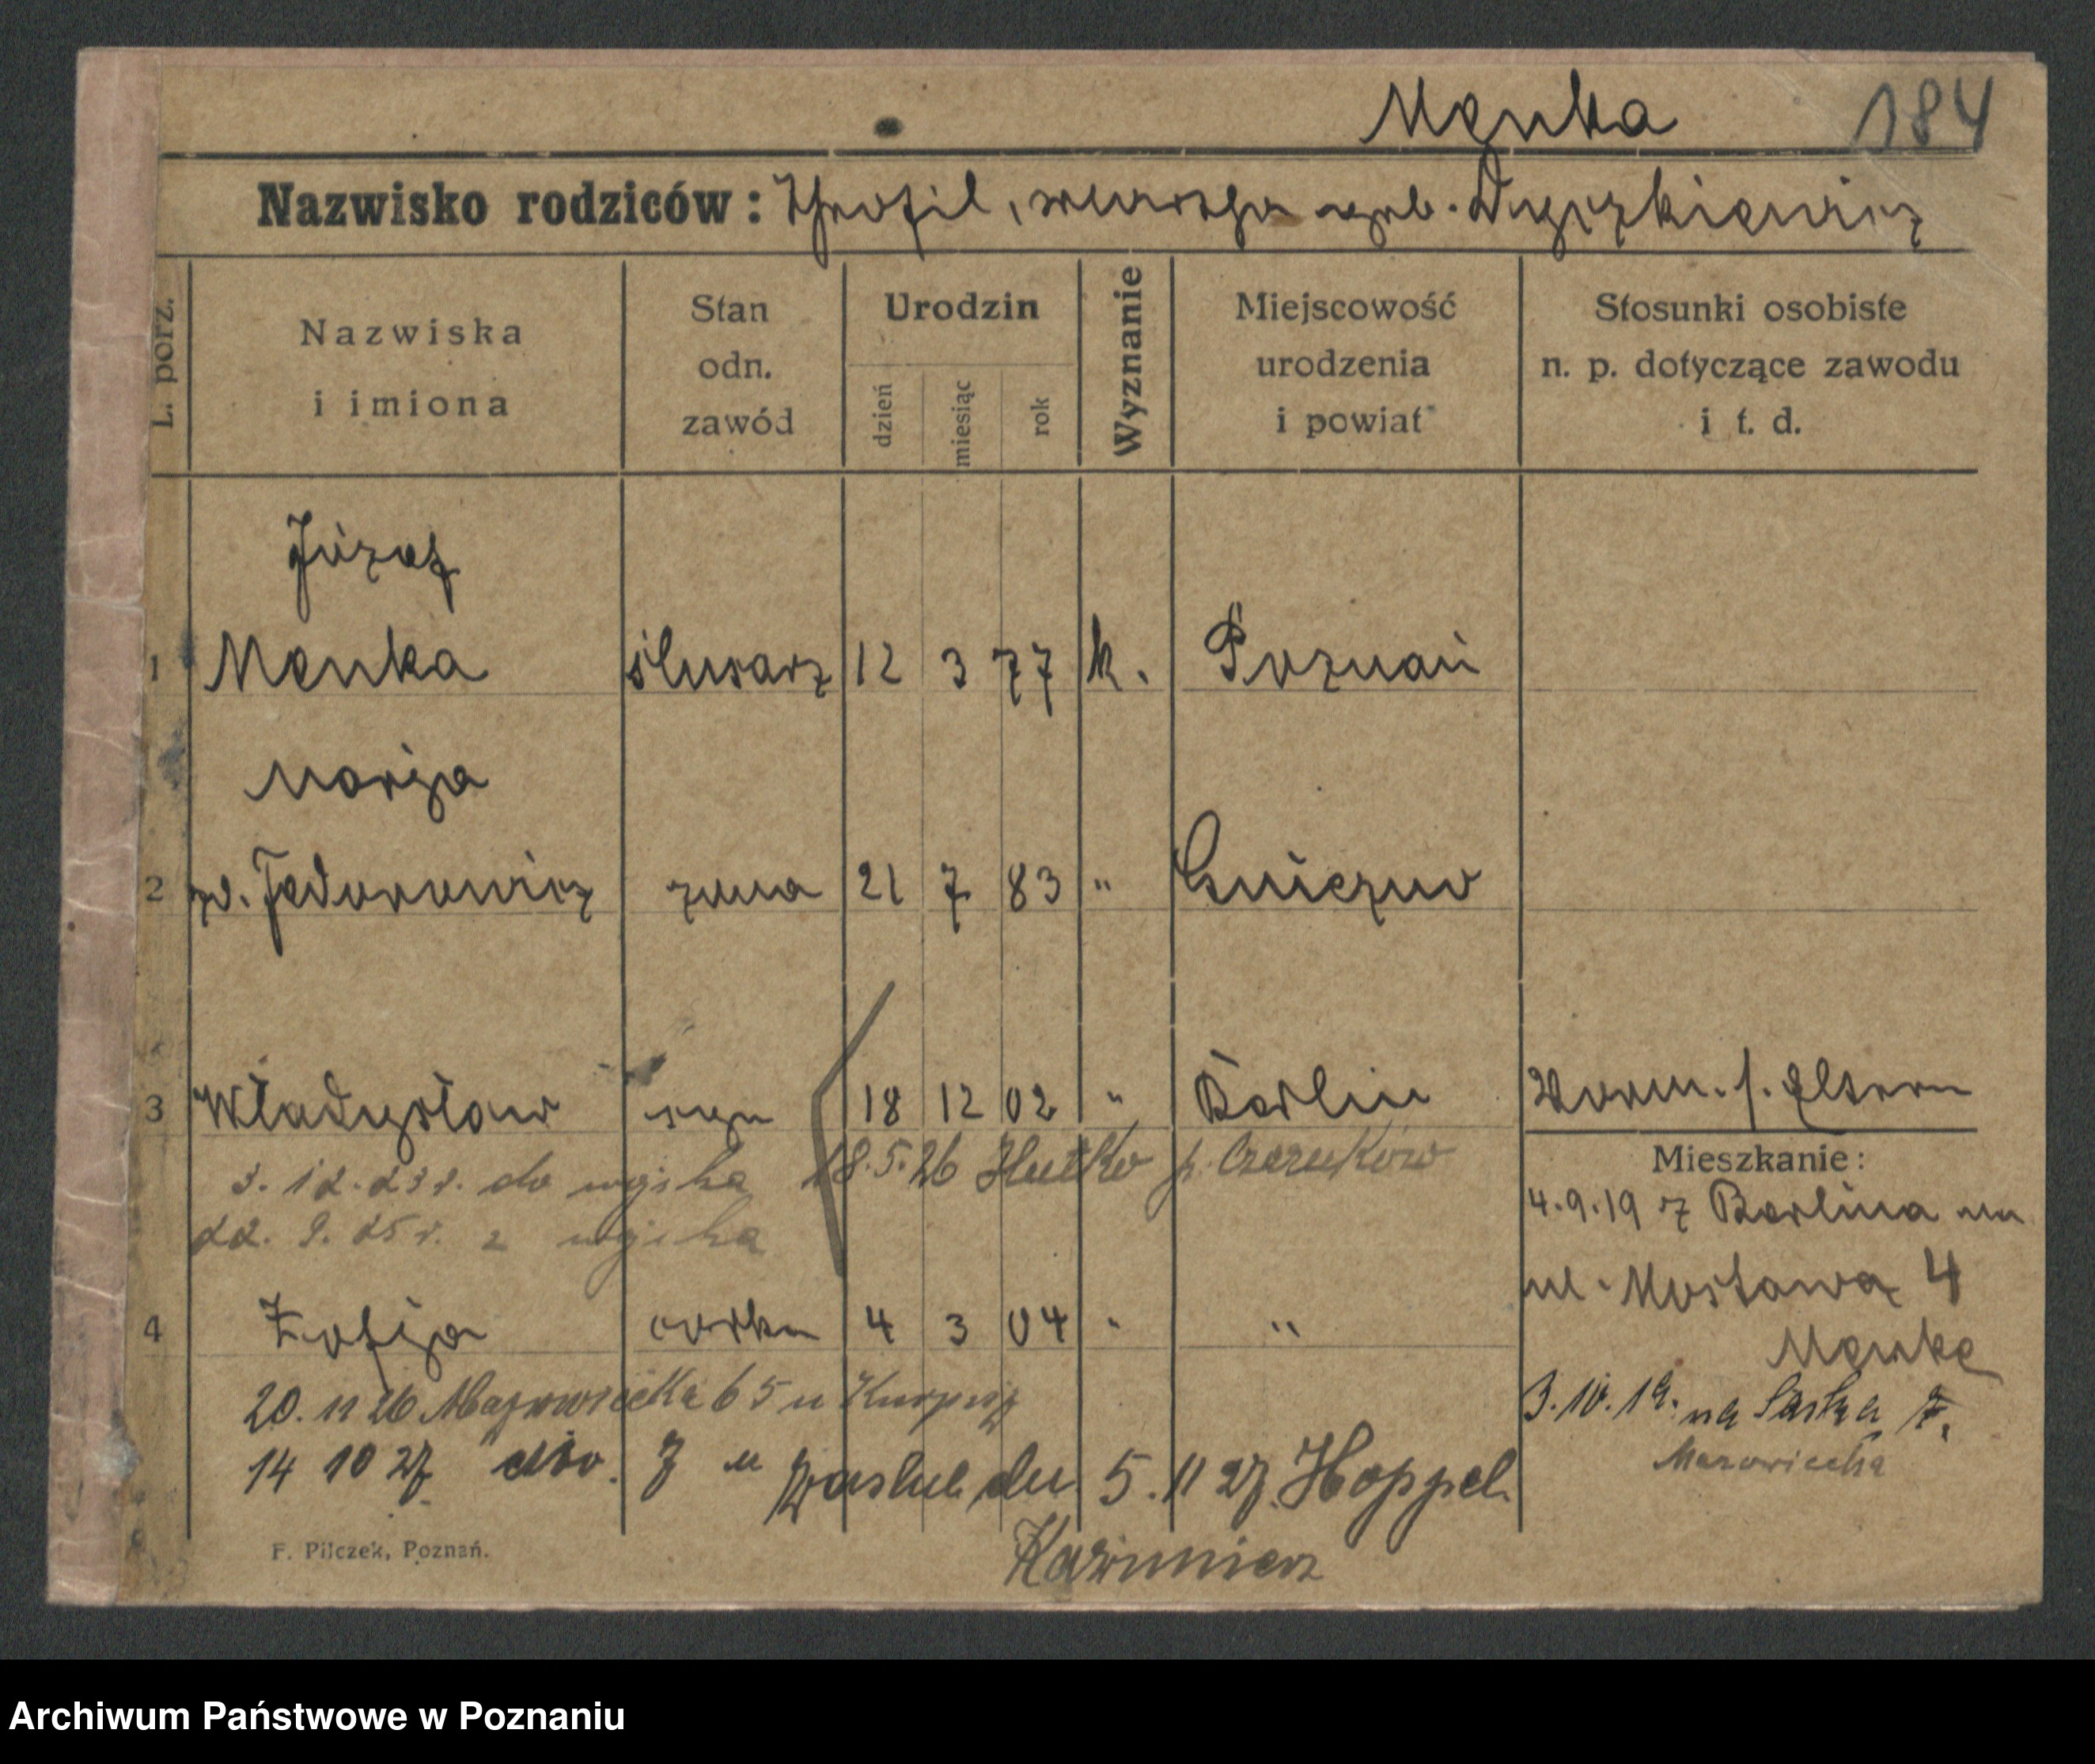 Menka 184
Nazwisko rodziców: Teofil, Dyczkiewicz
L. porz.
Nazwiska i imiona
Stan odn. zawód
Urodzin
dzień miesiąc rok
Wyznanie
Miejscowość urodzenia i powiat
Stosunki osobiste n. p. dotyczące zawodu i t. d.
Józef
1 Menka ślusarz 12 3 77 k. Poznań
Marja
2 Fedorowicz żona 21 7 83 " Gniezno
3 Władysław syn 18 12 02 " Berlin Worm. s. Eltern
3. 12. 23 r. do wojska 18.5.26 Hutko p. Czerników
22. 9. 25 r. z wojska
Mieszkanie:
4.9.19 z Berlina na
ul. Mostowa 4
Menke
4 Zofja córka 4 3 04 " "
20. 11 26 Mazowiecka 65 u
3.10.19. na Saska 7.
Mazowiecka
14 10 27 dto. 7 u zaślub. dn. 5. 11 27. Hoppel
Kazimierz
F. Pilczek, Poznań.
Archiwum Państwowe w Poznaniu